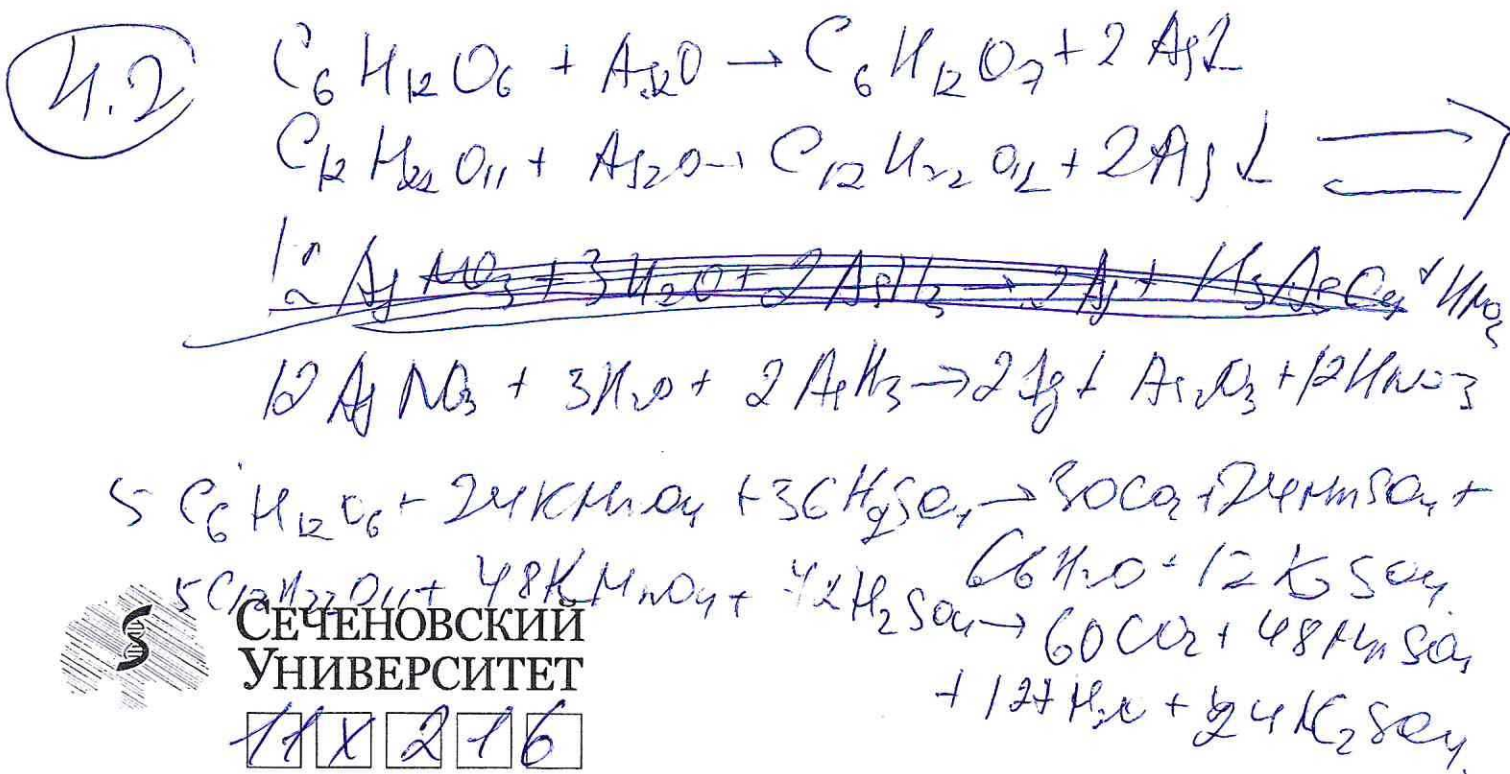 4.2
C₆H₁₂O₆ + Ag₂O → C₆H₁₂O₇ + 2Ag↓
C₁₂H₂₂O₁₁ + Ag₂O → C₁₂H₂₂O₁₂ + 2Ag↓
12AgNO₃ + 3H₂O + 2AsH₃ → 2Ag + As₂O₃ + 12HNO₃
5C₆H₁₂O₆ + 24KMnO₄ + 36H₂SO₄ → 30CO₂ + 24MnSO₄ +
66H₂O + 12K₂SO₄.
5C₁₂H₂₂O₁₁ + 48KMnO₄ + 42H₂SO₄ → 60CO₂ + 48MnSO₄
+ 127H₂O + 24K₂SO₄.
СЕЧЕНОВСКИЙ
УНИВЕРСИТЕТ
11X216